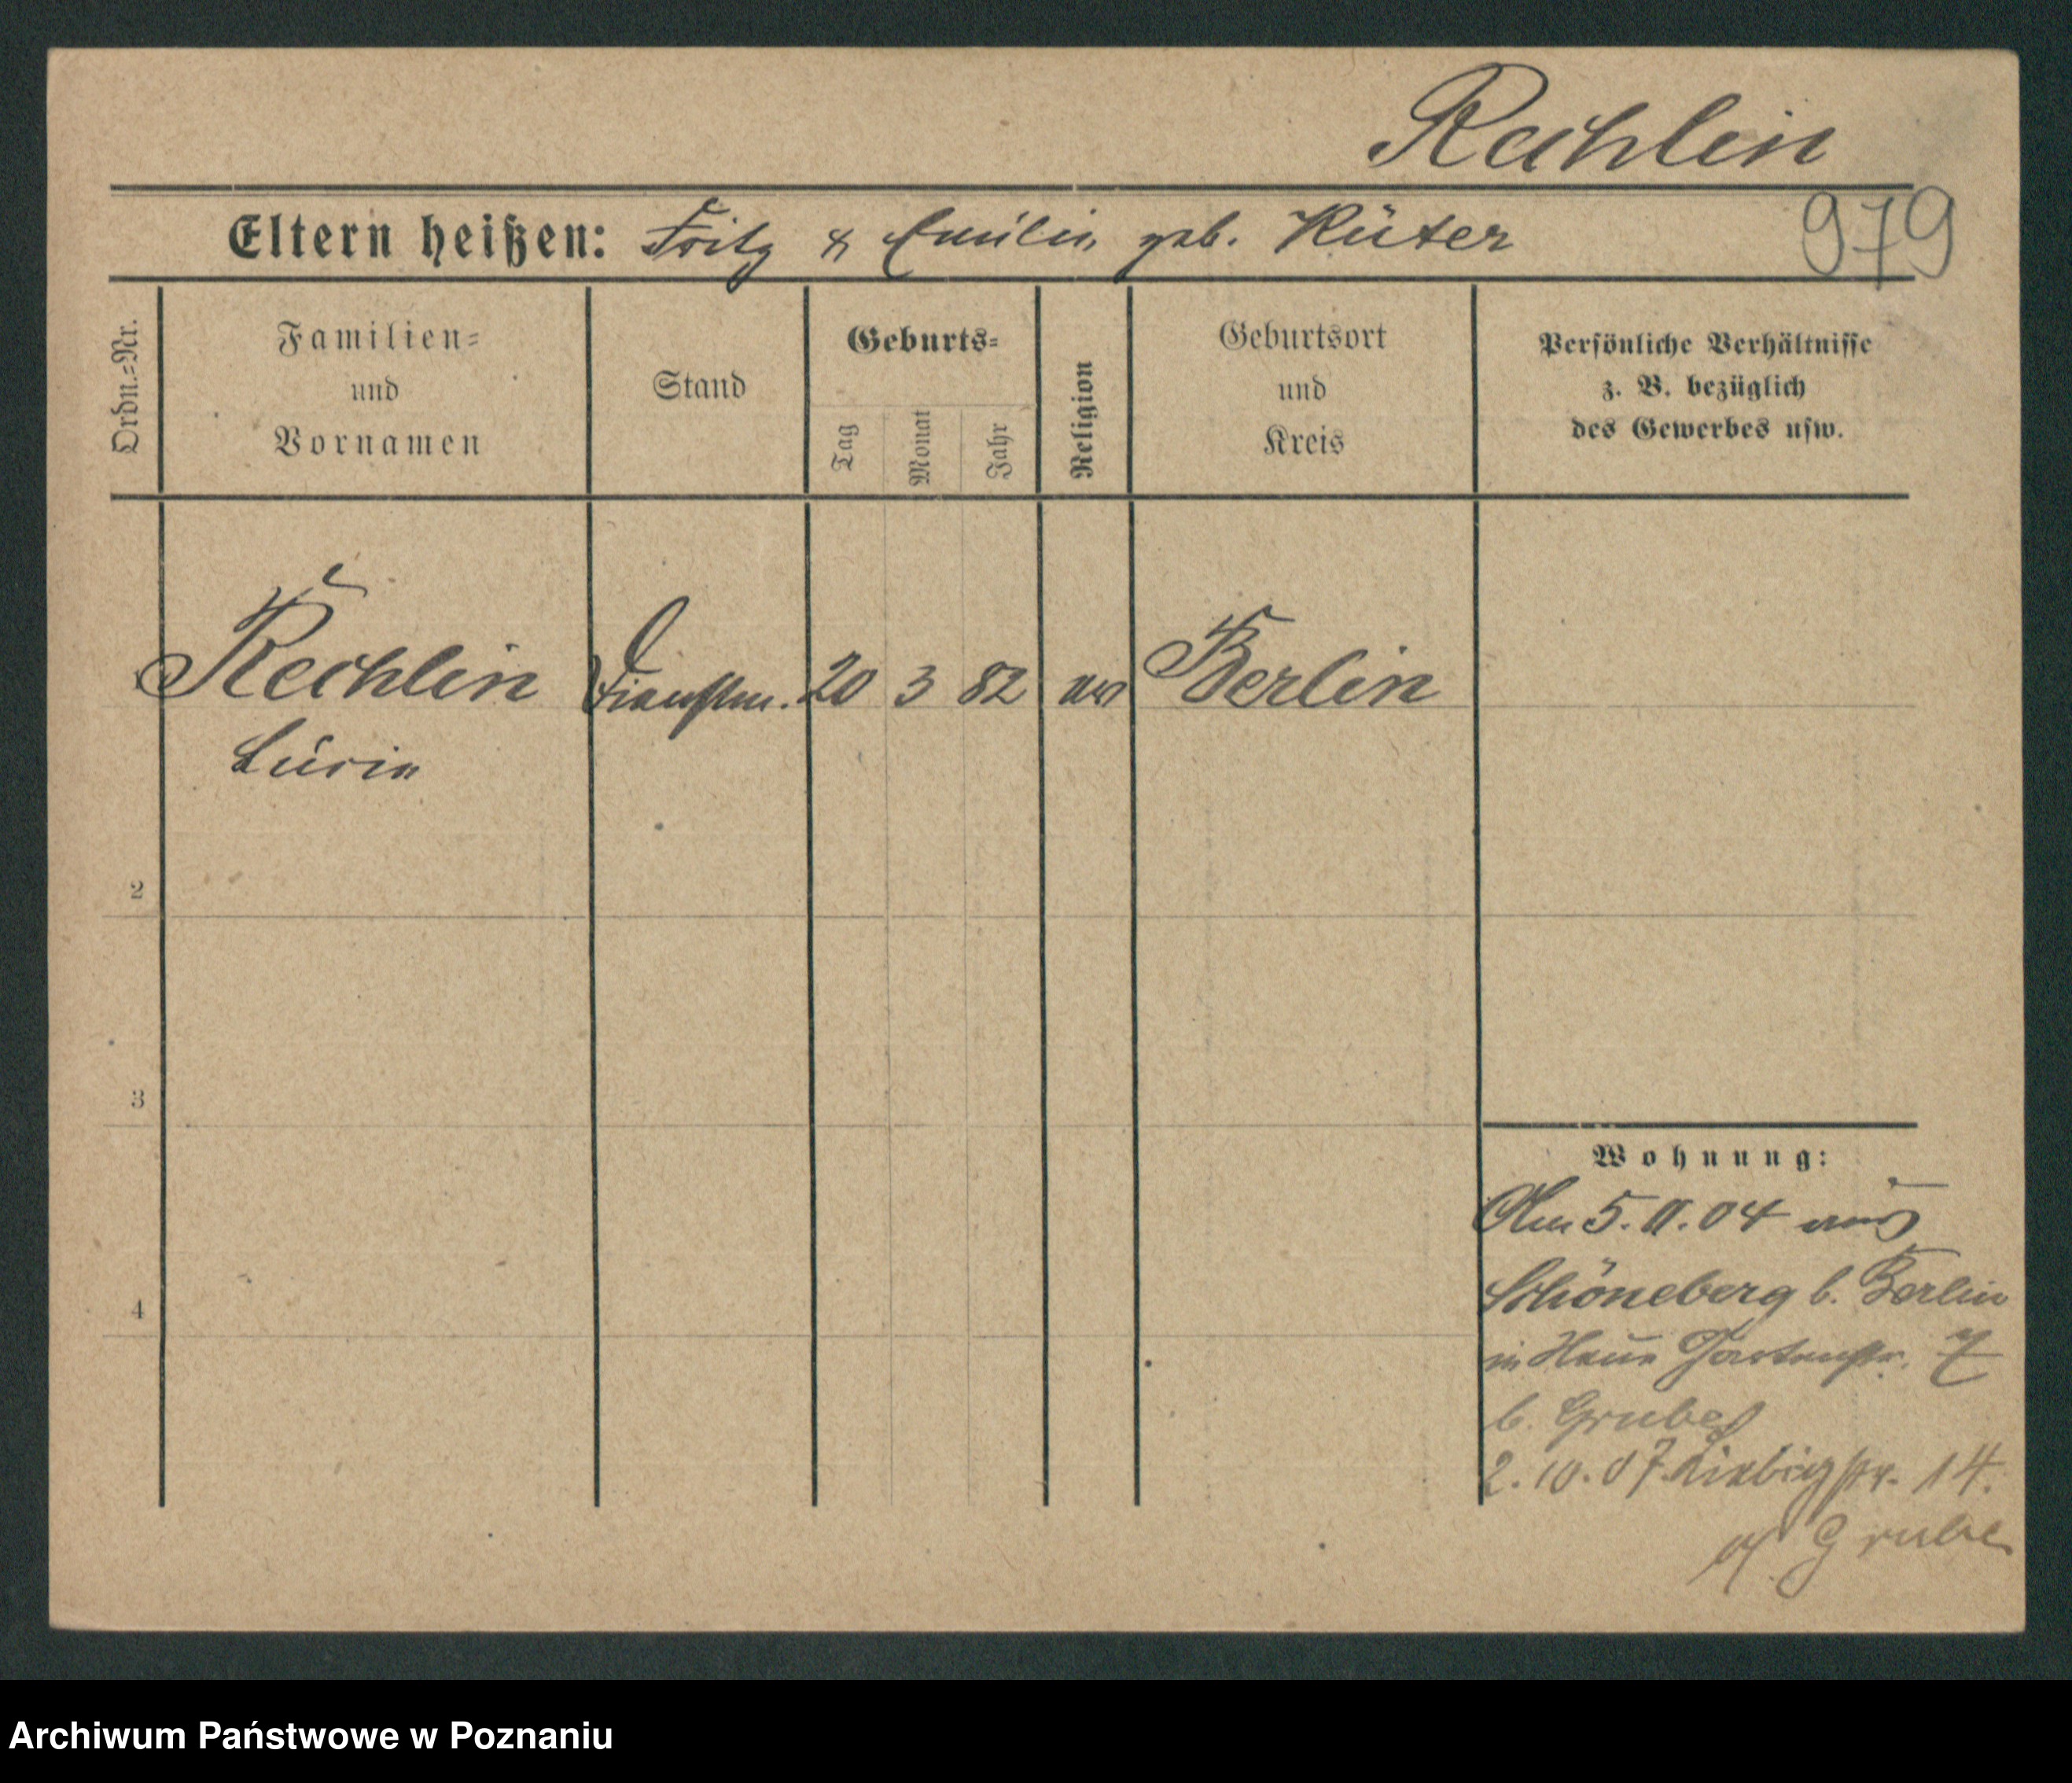 Rechlin
Eltern heißen: Fritz & Emilie geb. Rüter
979
Ordn.=Nr.
Familien=
und
Vornamen
Stand
Geburts=
Tag
Monat
Jahr
Religion
Geburtsort
und
Kreis
Persönliche Verhältnisse
z. B. bezüglich
des Gewerbes usw.
Rechlin
Dienstm. 20 3 82 ev Berlin
2
3
4
Wohnung:
Am 5.11.04 aus
Schöneberg b. Berlin
in Neue Gartenstr. 7
b. Grube
2.10.07 Liebigstr. 14.
Grube
Archiwum Państwowe w Poznaniu